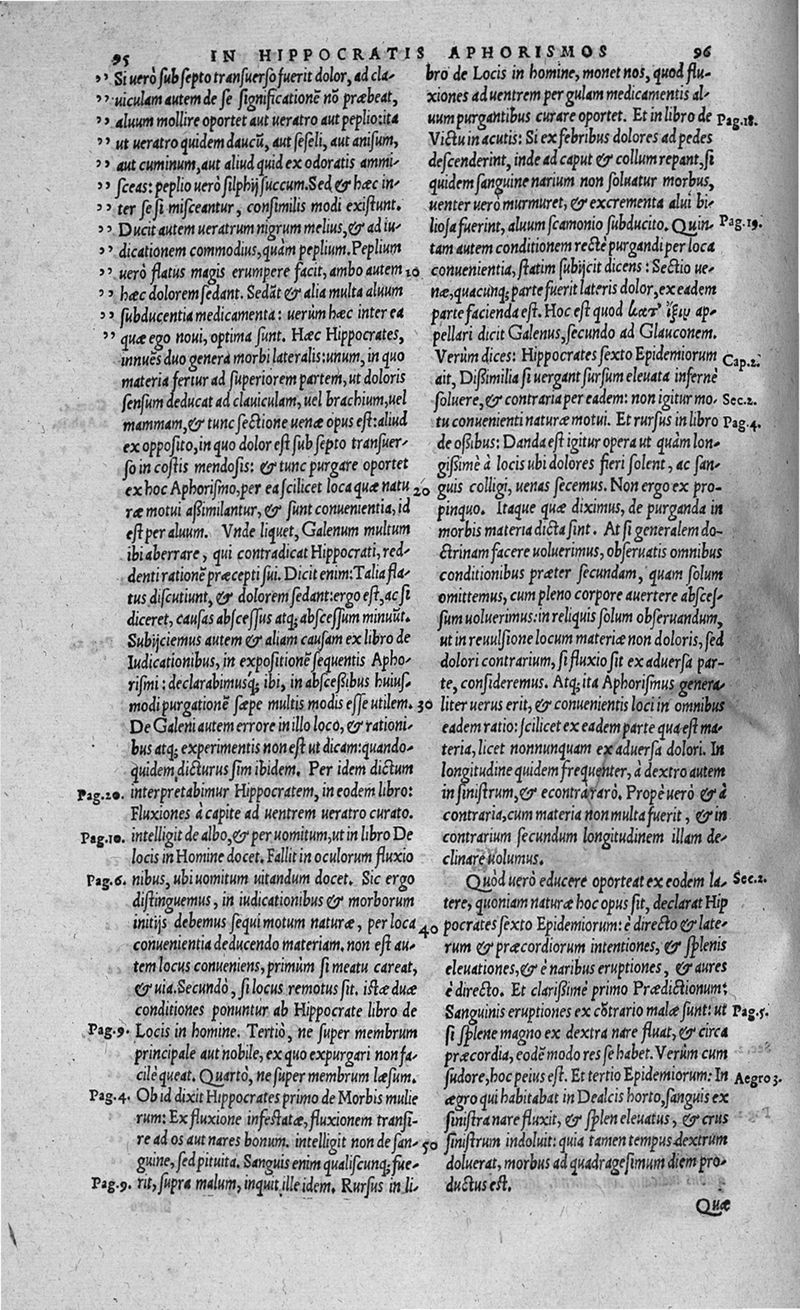 95 IN HIPPOCRATIS APHORISMOS 96
,, Si uerò sub septo transuerso fuerit dolor, ad cla-
,, uiculam autem de se significationē nō præbeat,
,, aluum mollire oportet aut ueratro aut peplio: ita
,, ut ueratro quidem daucū, aut seseli, aut anisum,
,, aut cuminum, aut aliud quid ex odoratis ammi-
,, sceas: peplio uerò silphij succum. Sed & hæc in-
,, ter se si misceantur, consimilis modi existunt.
,, Ducit autem ueratrum nigrum melius, & ad iu-
,, dicationem commodius, quàm peplium. Peplium
,, uerò flatus magis erumpere facit, ambo autem 10
,, hæc dolorem sedant. Sedāt & alia multa aluum
,, subducentia medicamenta: uerùm hæc inter ea
,, quæ ego noui, optima sunt. Hæc Hippocrates,
innuēs duo genera morbi lateralis: unum, in quo
materia fertur ad superiorem partem, ut doloris
sensum deducat ad clauiculam, uel brachium, uel
mammam, & tunc sectione uenæ opus est: aliud
ex opposito, in quo dolor est sub septo transuer-
so in costis mendosis: & tunc purgare oportet
ex hoc Aphorismo, per ea scilicet loca quæ natu 20
ræ motui assimilantur, & sunt conuenientia, id
est per aluum. Vnde liquet, Galenum multum
ibi aberrare, qui contradicat Hippocrati, red-
denti rationē præcepti sui. Dicit enim: Talia fla-
tus discutiunt, & dolorem sedant: ergo est, ac si
diceret, causas abscessus atq; abscessum minuūt.
Subijciemus autem & aliam causam ex libro de
Iudicationibus, in expositionē sequentis Apho-
rismi: declarabimusq; ibi, in abscessibus huius-
modi purgationē sæpe multis modis esse utilem. 30
De Galeni autem errore in illo loco, & rationi-
bus atq; experimentis non est ut dicam: quando-
quidem dicturus sim ibidem. Per idem dictum
Pag.20. interpretabimur Hippocratem, in eodem libro:
Fluxiones à capite ad uentrem ueratro curato.
Pag.10. intelligit de albo, & per uomitum, ut in libro De
locis in Homine docet. Fallit in oculorum fluxio
Pag.6. nibus, ubi uomitum uitandum docet. Sic ergo
distinguemus, in iudicationibus & morborum
initijs debemus sequi motum naturæ, per loca 40
conuenientia deducendo materiam. non est au-
tem locus conueniens, primùm si meatu careat,
& uia. Secundò, si locus remotus sit. istæ duæ
conditiones ponuntur ab Hippocrate libro de
Pag.9. Locis in homine. Tertiò, ne super membrum
principale aut nobile, ex quo expurgari non fa-
cilè queat. Quartò, ne super membrum læsum.
Pag.4. Ob id dixit Hippocrates primo de Morbis mulie
rum: Ex fluxione infestatæ, fluxionem transi-
re ad os aut nares bonum. intelligit non de san- 50
guine, sed pituita. Sanguis enim qualiscunq; fue-
Pag.9. rit, supra malum, inquit ille idem. Rursus in li-
bro de Locis in homine, monet nos, quod flu-
xiones ad uentrem per gulam medicamentis al-
uum purgantibus curare oportet. Et in libro de Pag.18.
Victu in acutis: Si ex febribus dolores ad pedes
descenderint, inde ad caput & collum repant, si
quidem sanguine narium non soluatur morbus,
uenter uerò murmuret, & excrementa alui bi-
liosa fuerint, aluum scamonio subducito. Quin- Pag.19.
tam autem conditionem rectè purgandi per loca
conuenientia, statim subijcit dicens: Sectio ue-
næ, quacunq; parte fuerit lateris dolor, ex eadem
parte facienda est. Hoc est quod κατ' ἴξιν ap-
pellari dicit Galenus, secundo ad Glauconem.
Verùm dices: Hippocrates sexto Epidemiorum Cap.2.
ait, Dissimilia si uergant sursum eleuata infernè
soluere, & contraria per eadem: non igitur mo- Sec.2.
tu conuenienti naturæ motui. Et rursus in libro Pag.4.
de ossibus: Danda est igitur opera ut quàm lon-
gissimè à locis ubi dolores fieri solent, ac san-
guis colligi, uenas secemus. Non ergo ex pro-
pinquo. Itaque quæ diximus, de purganda in
morbis materia dicta sint. At si generalem do-
ctrinam facere uoluerimus, obseruatis omnibus
conditionibus præter secundam, quam solum
omittemus, cum pleno corpore auertere absces-
sum uoluerimus: in reliquis solum obseruandum,
ut in reuulsione locum materiæ non doloris, sed
dolori contrarium, si fluxio sit ex aduersa par-
te, consideremus. Atq; ita Aphorismus genera-
liter uerus erit, & conuenientis loci in omnibus
eadem ratio: scilicet ex eadem parte qua est ma-
teria, licet nonnunquam ex aduersa dolori. In
longitudine quidem frequenter, à dextro autem
in sinistrum, & econtrà rarò. Propè uerò & à
contraria, cum materia non multa fuerit, & in
contrarium secundum longitudinem illam de-
clinare uolumus.
Quòd uerò educere oporteat ex eodem la- Sec.2.
tere, quoniam naturæ hoc opus sit, declarat Hip
pocrates sexto Epidemiorum: è directo & late-
rum & præcordiorum intentiones, & splenis
eleuationes, & è naribus eruptiones, & aures
è directo. Et clarissimè primo Prædictionum:
Sanguinis eruptiones ex cōtrario malæ sunt: ut Pag.5.
si splene magno ex dextra nare fluat, & circa
præcordia, eodē modo res se habet. Verùm cum
sudore, hoc peius est. Et tertio Epidemiorum: In Aegro 3.
ægro qui habitabat in Dealcis horto, sanguis ex
sinistra nare fluxit, & splen eleuatus, & crus
sinistrum indoluit: quia tamen tempus dextrum
doluerat, morbus ad quadragesimum diem pro-
ductus est.
Quæ